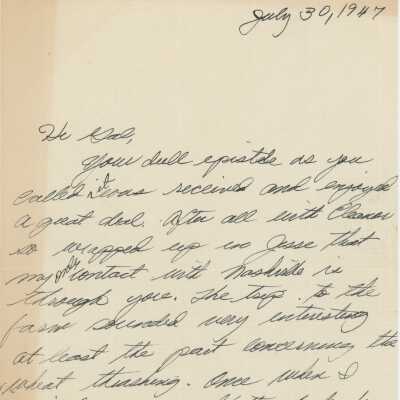 July 30, 1947
Hi Gal,
Your dull epistle as you
called it was received and enjoyed
a great deal. After all with Eleanor
so wrapped up in Jesse that
my only contact with Nashville is
through you. The trip to the
farm sounded very interesting
at least the part concerning the
wheat thrashing. Once when I